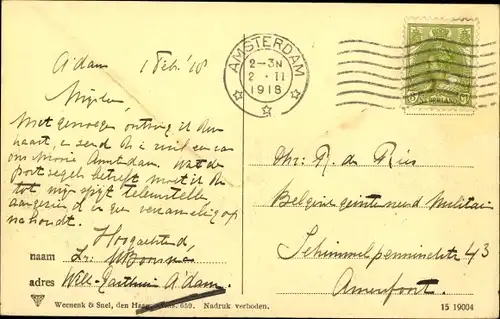 A'dam 1 Febr. '18
Mijnh.,
Met genoegen ontving ik Uw
kaart, en zend U een van
ons mooie Amsterdam. Wat de
postzegels betreft moet ik U
tot mijn spijt teleurstellen
aangezien ik er geen verzameling op
na houdt.
Hoogachtend,
naam
adres A'dam.
Weenenk & Snel, den Haag 659. Nadruk verboden.
AMSTERDAM
2-3N
2 . II
1918
Mr. R. de
Belgie geinterneerd Militair
Schimmelpenninckstr 43
Amersfoort.
15 19004